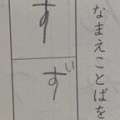 なまえことばを
す
ず